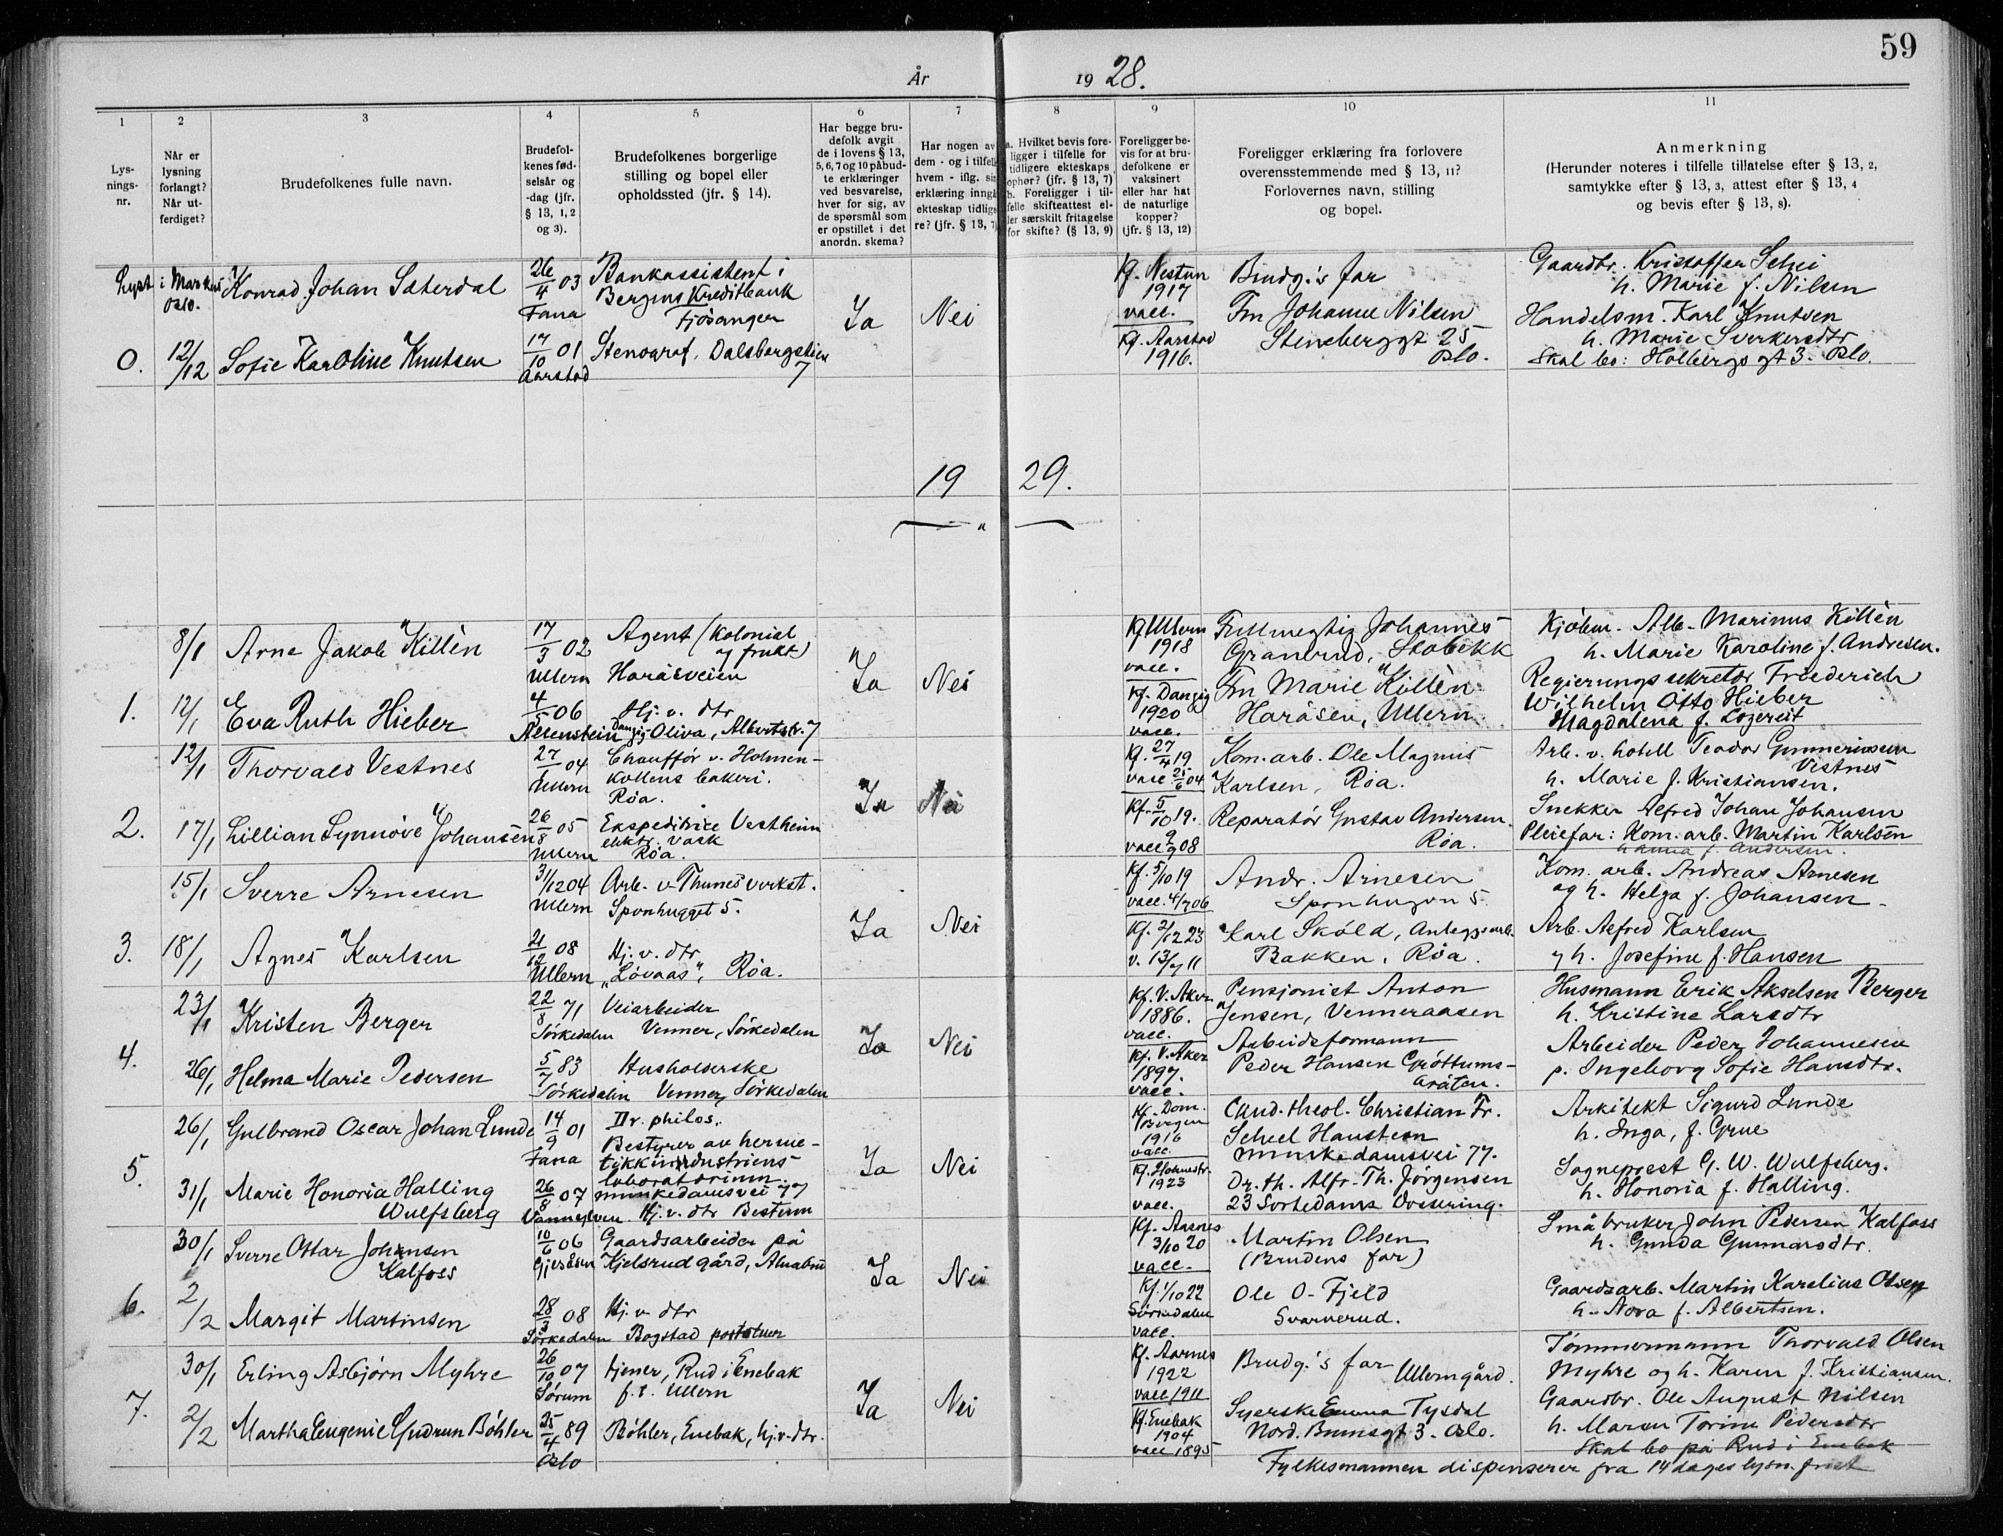 59
År 19 28.
1 2 3 4 5 6 7 8 9 10 11
Lys-
nings-
nr.
Når er
lysning
forlangt?
Når ut-
ferdiget?
Brudefolkenes fulle navn.
Brudefol-
kenes fød-
selsår og
-dag (jfr.
§ 13, 1, 2
og 3).
Brudefolkenes borgerlige
stilling og bopel eller
opholdssted (jfr. § 14).
Har begge bru-
defolk avgit
de i lovens § 13,
5, 6, 7 og 10 påbud-
te erklæringer
ved besvarelse,
hver for sig, av
de spørsmål som
er opstillet i det
anordn. skema?
Har nogen av
dem - og i tilfelle
hvem - iflg. sin
erklæring inngå
ekteskap tidlige
re? (jfr. § 13, 7)
a. Hvilket bevis fore-
ligger i tilfelle for
tidligere ekteskaps
ophør? (jfr. § 13, 7)
b. Foreligger i til-
felle skifteattest el-
ler særskilt fritagelse
for skifte? (§ 13, 9)
Foreligger be-
vis for at bru-
defolkene er
vaksinert
eller har hat
de naturlige
kopper?
(jfr. § 13, 12)
Foreligger erklæring fra forlovere
overensstemmende med § 13, 11?
Forlovernes navn, stilling
og bopel.
Anmerkning
(Herunder noteres i tilfelle tillatelse efter § 13, 2,
samtykke efter § 13, 3, attest efter § 13, 4
og bevis efter § 13, 8).
Lyst i Markus Oslo.
Konrad Johan Sæterdal
26/4 03 Fana
Bankassistent i
Bergens Kreditbank
Fjösanger
Ja Nei
Kf. Nestun
1917
vacc.
Brudg.'s far
Gaardbr. Kristoffer
h. Marie f. Nilsen
0. 12/12 Sofie Karoline Knutsen
17/10 01 Aarstad
Stenograf, Dalsbergstien
7
Kf. Aarstad
1916.
Fru Johanne Nilsen
Stensberggt 25
Oslo.
Handelsm. Karl Knutsen
h. Marie Sverkersdtr
Skal bo: Holbergs gt 3. Oslo.
19 29.
8/1 Arne Jakob Killèn
17/3 02 Ullern
Agent (Kolonial
og frukt)
Haråsveien
Ja Nei
Kf Ullern
1918
vacc.
Fullmegtig Johannes
Granerud, Stabekk
Kjøbm. Alb. Marinus Killèn
h. Marie Karoline f. Andresen.
1. 12/1 Eva Ruth Hieber
4/5 06 Allenstein
Hj. v. dtr
Danzig-Oliva, Albertstr. 7
Kf. Danzig
1920
vacc.
Fru Marie Killèn
Haråsen, Ullern
Regierungssekretär Friederich
Wilhelm Otto Hieber
Magdalena f. Lozereit
12/1 Thorvald Vestnes
27/1 04 Ullern
Chauffør v. Holmen-
kollens bakeri.
Røa.
Ja Nei
Kf. 27/4 19
vacc 25/6 04
Kom. arb. Ole Magnus
Karlsen, Røa.
Arb. v. hotell Teodor Gunneriussen
Vestnes
h. Marie f. Kristiansen.
2. 17/1 Lillian Synnøve Johansen
26/8 05 Ullern
Ekspeditrice Vestheim
elektr. vask
Røa.
Kf. 5/10 19.
vacc 2/9 08
Reparatør Gustav Andersen.
Røa.
Snekker Alfred Johan Johansen
Pleiefar: Kom. arb. Martin Karlsen
h. Anna f. Andersen.
15/1 Sverre Arnesen
31/12 04 Ullern
Arb. v. Thunes verkst.
Sponhugget 5.
Ja Nei
Kf. 5/10 19
vacc. 4/7 06
Andr. Arnesen
Sponhugon 5
Kom. arb. Andreas Arnesen
og h. Helga f. Johansen
3. 18/1 Agnes Karlsen
21/12 08 Ullern
Hj. v. dtr
"Løvaas", Røa.
Kf. 2/12 23
v. 13/7 11
Karl Sköld, Anlegsarb.
Bakken, Røa.
Arb. Alfred Karlsen
og h. Josefine f. Hansen
23/1 Kristen Berger
22/8 71 Sørkedalen
Veiarbeider
Venner, Sørkedalen
Ja Nei
Kf. V. Aker
1886.
vacc.
Pensjonist Anton
Jensen, Venneraasen
Husmann Erik Akselsen Berger
h. Kristine Larsdtr
4. 26/1 Helma Marie Pedersen
5/7 83 Sørkedalen
Husholderske
Venner, Sørkedalen
Kf. V. Aker
1897.
vacc.
Arbeidsformann
Peder Hansen Grøttums-
bråten.
Arbeider Peder Johannesen
p. Ingeborg Sofie Hansdtr.
26/1 Gulbrand Oscar Johan Lunde
14/9 01 Fana
Dr. philos.
Bestyrer av herme-
tikkindustriens
laboratorium.
Munkedamsvei 77
Ja Nei
Kf. Dom.
Bergen
1916
vacc.
Cand. theol. Christian Fr.
Scheel Hausteen
Munkedamsvei 77.
Arkitekt Sigurd Lunde
h. Inga, f. Grue
5. 31/1 Marie Honoria Halling
Wulfsberg
26/8 07 Vannelven
Hj. v. dtr Bestum
1923
vacc.
Dr. th. Alfr. Th. Jörgensen
23 Sortedams Dossering.
Sogneprest G. W. Wulfsberg.
h. Honoria f. Halling.
30/1 Sverre Ottar Johansen
Kalfoss
10/6 06 Gjerdsen
Gaardsarbeider på
Kjelsrud gård, Alnabru
Ja Nei
Kf. Aarnes
3/10 20
vacc.
Martin Olsen
(Brudens far)
Småbruker John Pedersen Kalfoss
h. Gunda Gunnarsdtr.
6. 2/2 Margit Martinsen
28/3 08 Sørkedalen
Hj. v. dtr
Bogstad portstuen
Kf. 1/10 22
Sørkedalen
vacc.
Ole O. Fjeld
Svarverud.
Gaardsarb. Martin Karelius Olsen
h. Nora f. Albertsen.
30/1 Erling Asbjørn Myhre
26/10 07 Sørum
tjener, Rud i Enebak
f. t. Ullern
Ja Nei
Kf. Aarnes
1922
vacc 1911
Brudg.'s far Ullerngård.
Tømmermann Thorvald Olsen
Myhre og h. Karen f. Kristiansen.
7. 2/2 Martha Eugenie Gudrun Bøhler
25/4 89 Oslo
Bøhler, Enebak, hj. v. dtr.
Kf. Enebak
1904
vacc 1895
Syerske Emma Tysdal
Nord. Brunsgt 3. Oslo.
Gaardbr. Ole August Nilsen
h. Maren Torine Pedersdtr
Skal bo på Rud i Enebak
Fylkesmannen dispenserer fra 14 dages lysn. frist